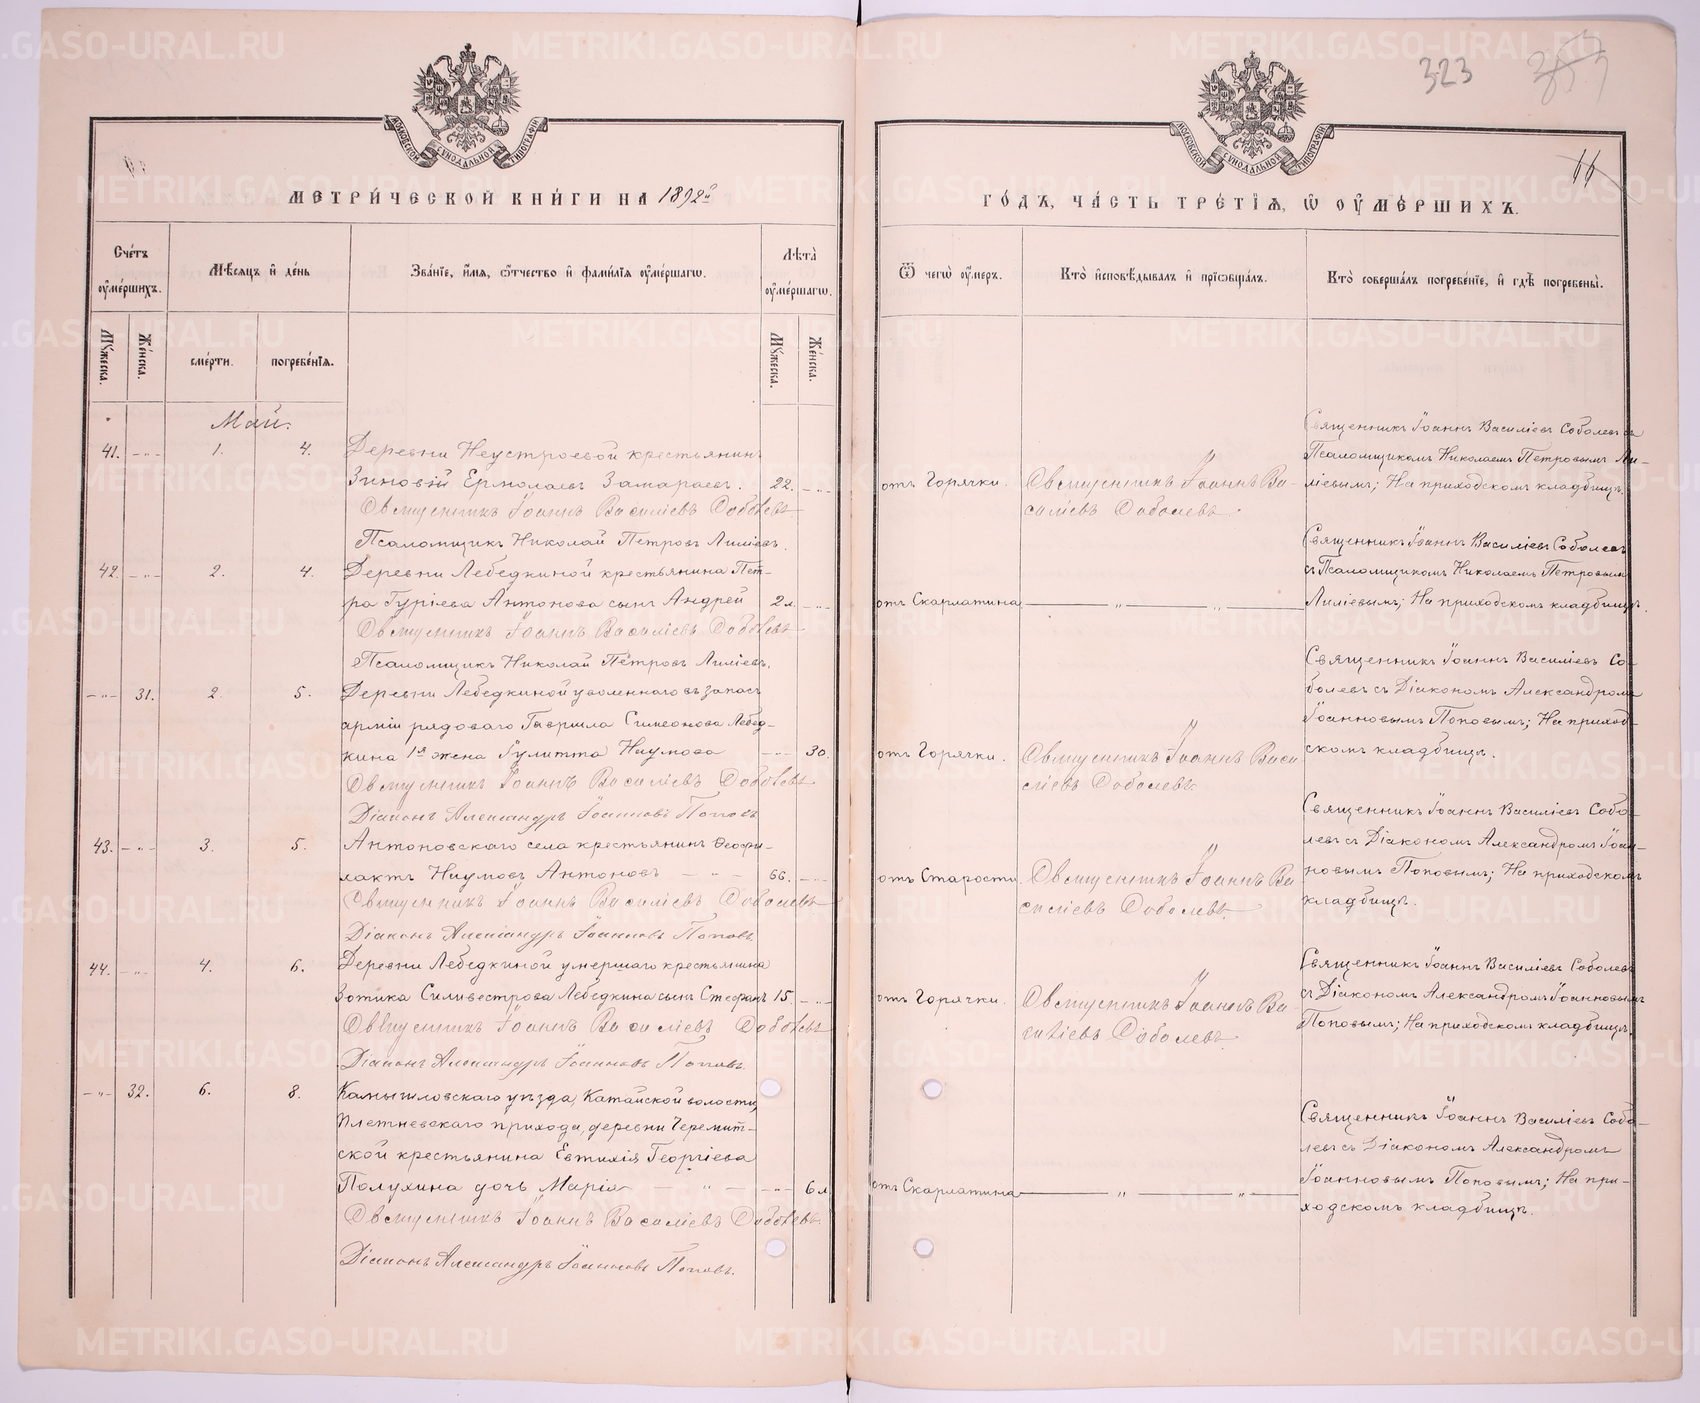 МЕТРИ́ЧЕСКОЙ КНИ́ГИ НА 1892й
ГО́ДЪ, ЧА́СТЬ ТРЕ́ТІѦ, Ѡ҆ ОУ҆МЕ́РШИХЪ.
323
66
МОСКОВСКОЙ СѴНОДАЛЬНОЙ ТИПОГРАФІИ
МОСКОВСКОЙ СѴНОДАЛЬНОЙ ТИПОГРАФІИ
Сче́тъ оу҆ме́ршихъ.
Мѣ́сѧцъ и҆ де́нь
Зва́нїе, и҆́мѧ, ѻ҆́тчество и҆ фами́лїѧ оу҆ме́ршагѡ.
Лѣ̑та̀ оу҆ме́ршагѡ.
Ѿ чегѡ̀ оу҆́меръ.
Кто̀ и҆сповѣ́дывалъ и҆ прїѡбща́лъ.
Кто̀ соверша́лъ погребе́нїе, и҆ гдѣ̀ погребены̀.
Мꙋ́жеска.
Же́нска.
сме́рти.
погребе́нїѧ.
Мꙋ́жеска.
Же́нска.
Май.
41. -"- 1. 4. Деревни Неустроевой крестьянинъ
Зиновій Ермолаевъ Замараевъ. 22. -"-
Священникъ Іоаннъ Василіевъ Соболевъ
Псаломщикъ Николай Петровъ Лиліевъ.
отъ Горячки.
Священникъ Іоаннъ Ва-
силіевъ Соболевъ.
Священникъ Іоаннъ Василіевъ Соболевъ съ
Псаломщикомъ Николаемъ Петровымъ Ли-
ліевымъ; На приходскомъ кладбищѣ.
42. -"- 2. 4. Деревни Лебедкиной крестьянина Пет-
ра Гуріева Антонова сынъ Андрей 2 л. -"-
Священникъ Іоаннъ Василіевъ Соболевъ
Псаломщикъ Николай Петровъ Лиліевъ.
отъ Скарлатина — " — " —
Священникъ Іоаннъ Василіевъ Соболевъ
съ Псаломщикомъ Николаемъ Петровымъ
Лиліевымъ; На приходскомъ кладбищѣ.
-"- 31. 2. 5. Деревни Лебедкиной уволеннаго въ запасъ
арміи рядоваго Гавриила Симеонова Лебед-
кина 1я жена Іулитта Наумова -"- 30.
Священникъ Іоаннъ Василіевъ Соболевъ
Діаконъ Александръ Іоанновъ Поповъ
отъ Горячки.
Священникъ Іоаннъ Васи
ліевъ Соболевъ
Священникъ Іоаннъ Василіевъ Со-
болевъ съ Діакономъ Александромъ
Іоанновымъ Поповымъ; На приход-
скомъ кладбищѣ.
43. -"- 3. 5. Антоновскаго села крестьянинъ Ѳеофи-
лактъ Наумовъ Антоновъ — " — 66. -"-
Священникъ Іоаннъ Василіевъ Соболевъ
Діаконъ Александръ Іоанновъ Поповъ.
отъ Старости.
Священникъ Іоаннъ Ва-
силіевъ Соболевъ.
Священникъ Іоаннъ Василіевъ Собо-
левъ съ Діакономъ Александромъ Іоан-
новымъ Поповымъ; На приходскомъ
кладбищѣ.
44. -"- 4. 6. Деревни Лебедкиной умершаго крестьянина
Зотика Силивестрова Лебедкина сынъ Стефанъ 15. -"-
Священникъ Іоаннъ Василіевъ Соболевъ
Діаконъ Александръ Іоанновъ Поповъ.
отъ Горячки.
Священникъ Іоаннъ Ва-
силіевъ Соболевъ
Священникъ Іоаннъ Василіевъ Соболевъ
съ Діакономъ Александромъ Іоанновымъ
Поповымъ; На приходскомъ кладбищѣ.
-"- 32. 6. 8. Камышловскаго уѣзда, Катайской волости,
Плетневскаго прихода, деревни Черемит-
ской крестьянина Евтихія Георгіева
Полухина дочь Марія — " — -"- 6 л.
Священникъ Іоаннъ Василіевъ Соболевъ.
Діаконъ Александръ Іоанновъ Поповъ.
отъ Скарлатина — " — " —
Священникъ Іоаннъ Василіевъ Собо-
левъ съ Діакономъ Александромъ
Іоанновымъ Поповымъ; На при-
ходскомъ кладбищѣ.
METRIKI.GASO-URAL.RU